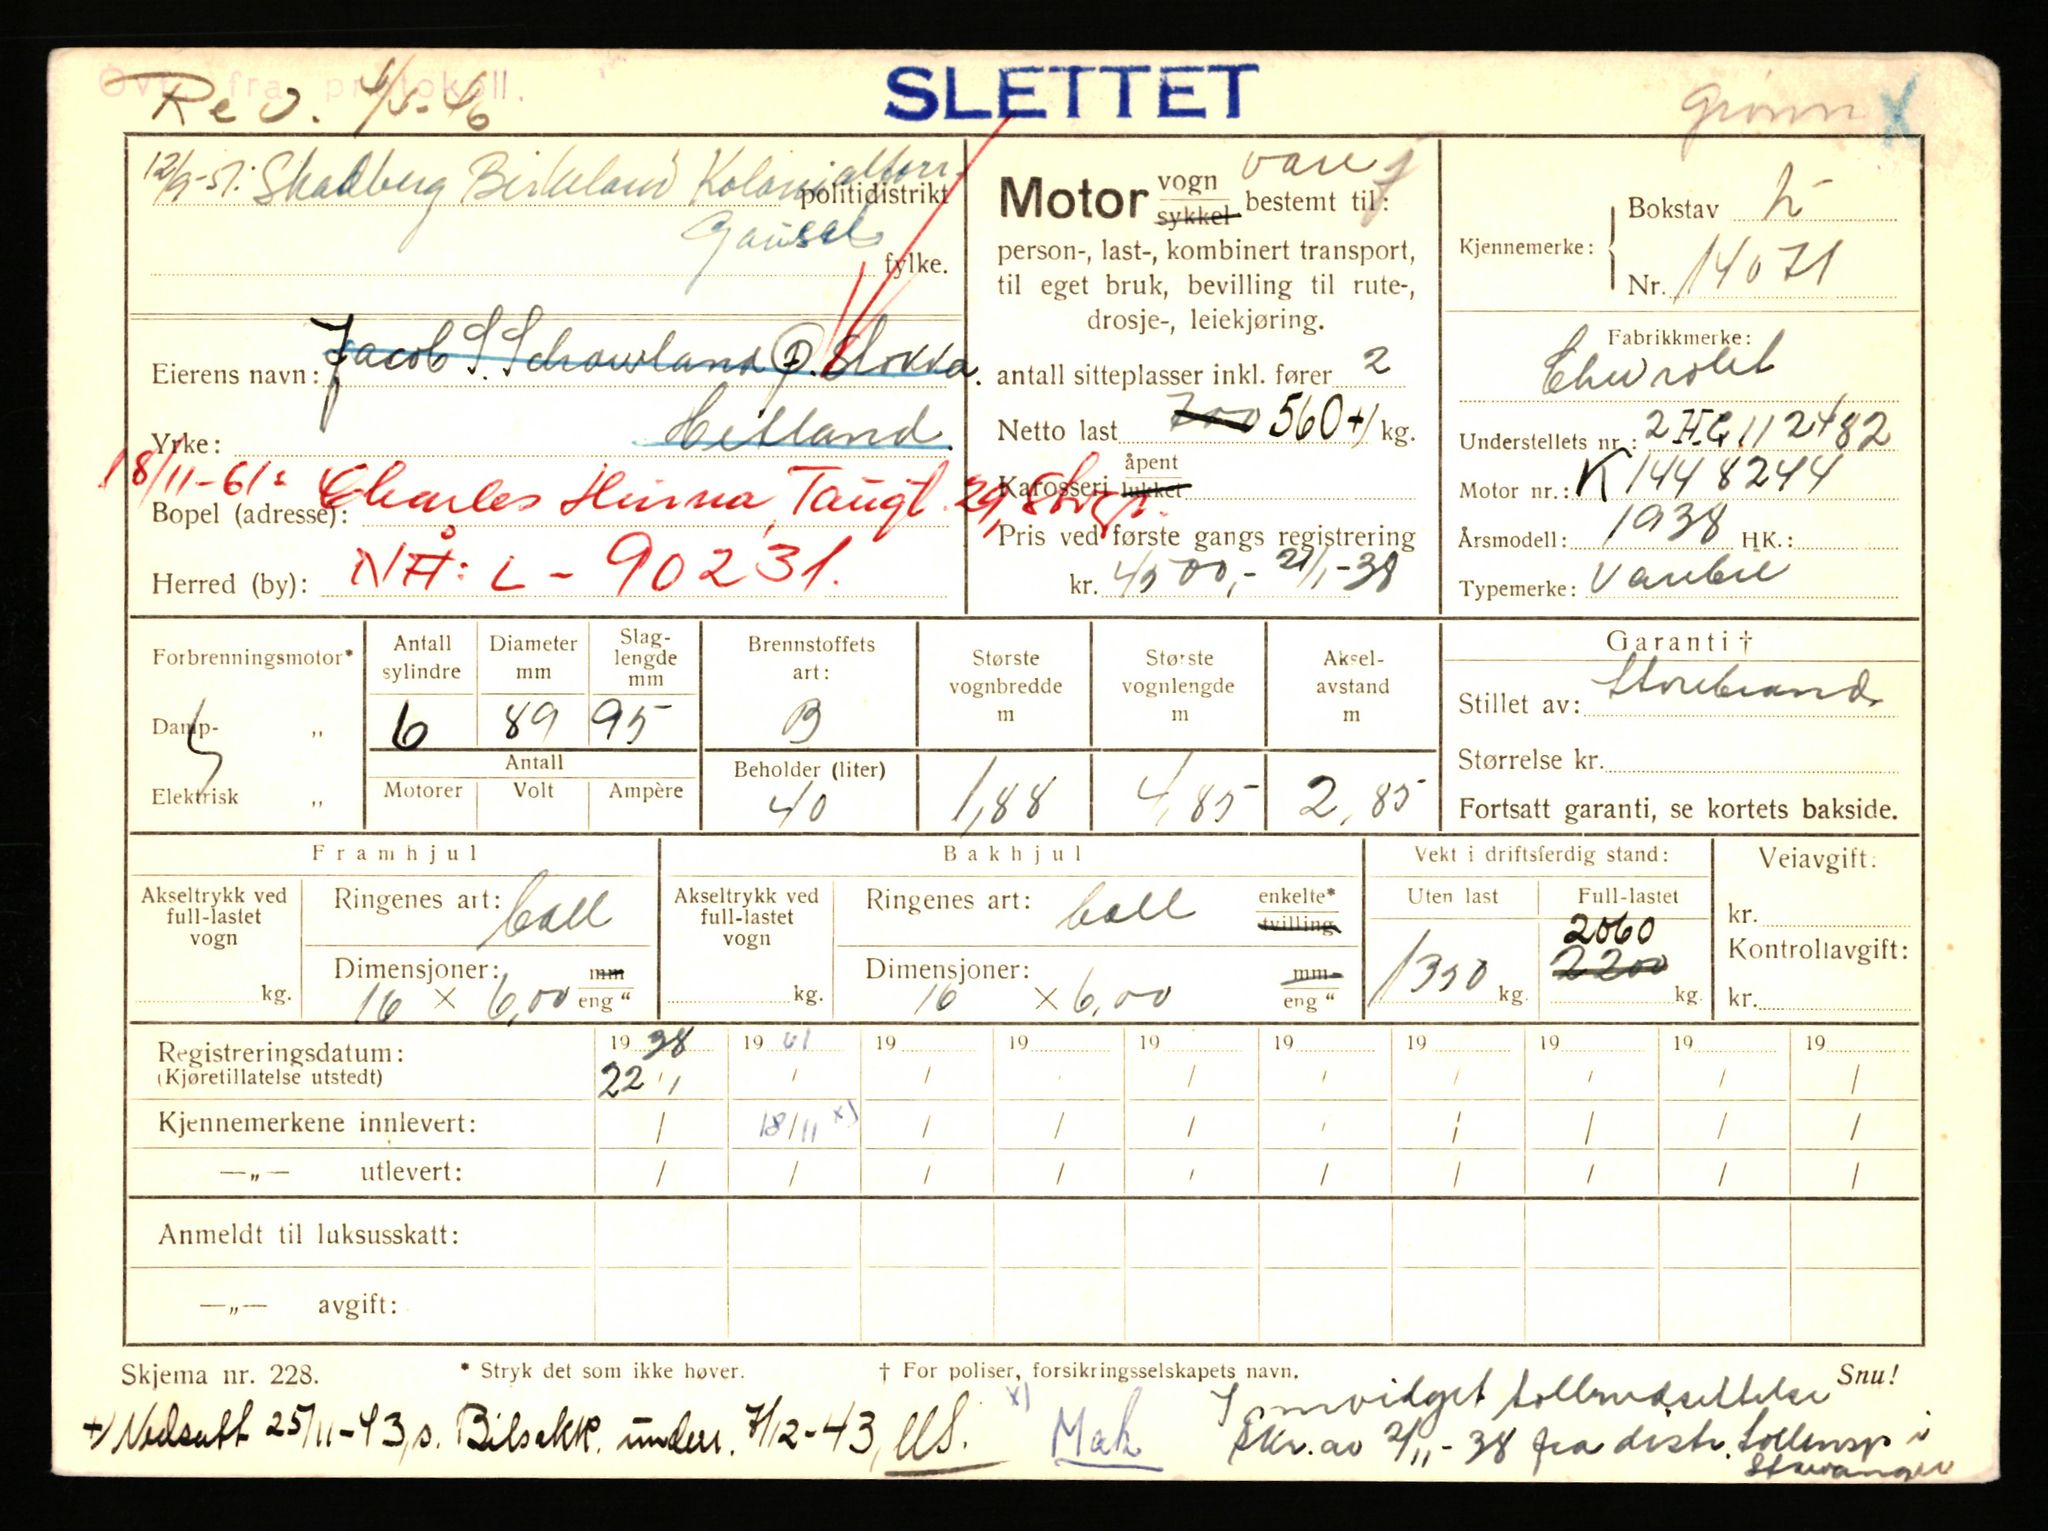 SLETTET
Overf. fra protokoll.
Rev. 4/5-46
Grønn X
12/9-51: Skadberg Birkeland Kolonialforr.
politidistrikt
Gausel
fylke.
Eierens navn: Jacob S. Schowland p. Stokka.
Yrke: Hetland
18/11-61: Charles Hinna, Taugt. 29, Stvgr.
Bopel (adresse):
Herred (by): NÅ: L-90231.
vare
Motor vogn sykkel bestemt til:
person-, last-, kombinert transport,
til eget bruk, bevilling til rute-,
drosje-, leiekjøring.
antall sitteplasser inkl. fører 2
Netto last 700 560 +) kg.
Karosseri åpent lukket
Pris ved første gangs registrering
kr. 4500,- 21/1-38
Kjennemerke: Bokstav L
Nr. 14071
Fabrikkmerke:
Chevrolet
Understellets nr.: 2HG112482
Motor nr.: K1448244
Årsmodell: 1938 HK.:
Typemerke: Varebil
Forbrenningsmotor*
Damp- „
Elektrisk „
Antall sylindre 6
Diameter mm 89
Slaglengde mm 95
Antall
Motorer Volt Ampère
Brennstoffets art: B
Beholder (liter) 40
Største vognbredde m 1,88
Største vognlengde m 4,85
Akselavstand m 2,85
Garanti †
Stillet av: Storebrand.
Størrelse kr.
Fortsatt garanti, se kortets bakside.
Framhjul
Akseltrykk ved full-lastet vogn kg.
Ringenes art: ball
Dimensjoner: 16 x 6,00 mm eng "
Bakhjul
Akseltrykk ved full-lastet vogn kg.
Ringenes art: ball enkelte* tvilling
Dimensjoner: 16 x 6,00 mm eng "
Vekt i driftsferdig stand:
Uten last 1350 kg.
Full-lastet 2060 2200 kg.
Veiavgift:
kr.
Kontrollavgift:
kr.
Registreringsdatum: 19 38 19 61 19 19 19 19 19 19 19 19
(Kjøretillatelse utstedt) 22/1 / / / / / / / / /
Kjennemerkene innlevert: / 18/11 x) / / / / / / / /
—„— utlevert: / / / / / / / / / /
Anmeldt til luksusskatt:
—„— avgift:
Skjema nr. 228. * Stryk det som ikke høver. † For poliser, forsikringsselskapets navn. Snu!
+) Nedsatt 25/11-43, s. Bilsakk. underr. 7/12-43,
x) Mak
tollnedsettelse
Skr. av 2/11-38 fra distr. tollinsp i
Stavanger